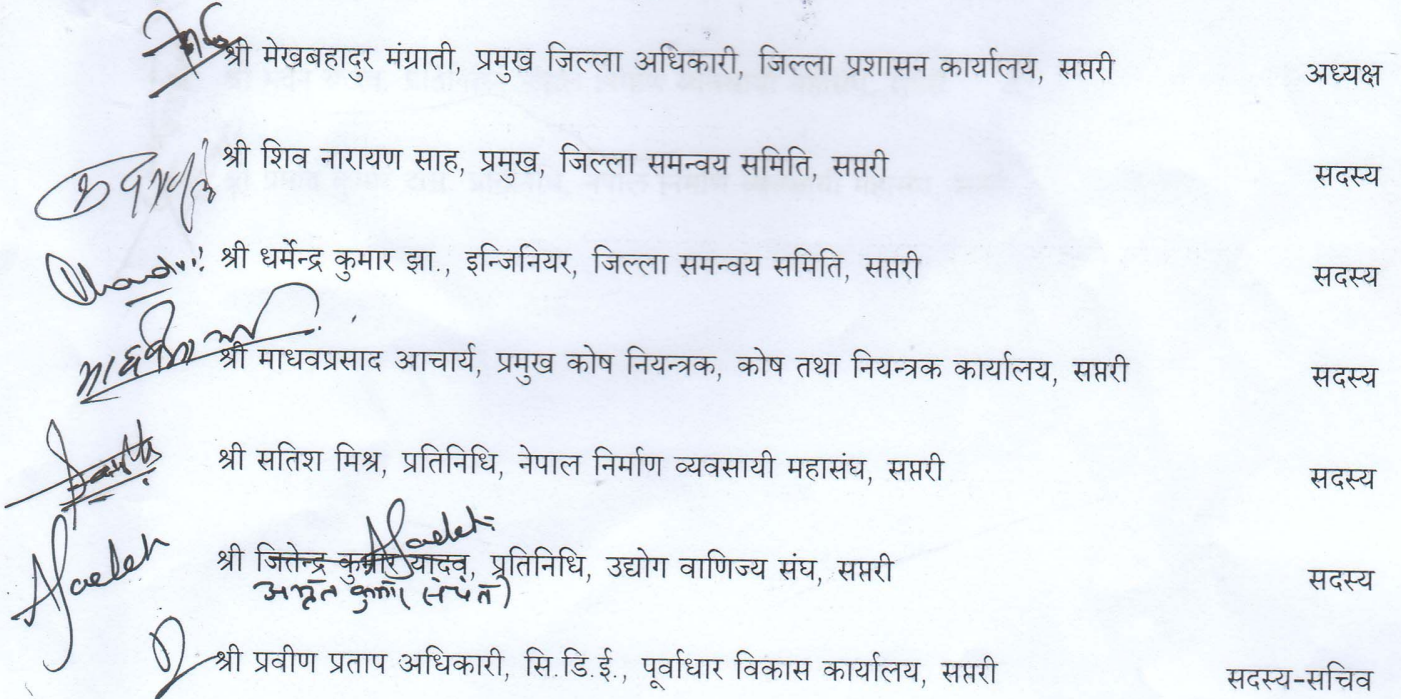 श्री मेखबहादुर मंग्राती, प्रमुख जिल्ला अधिकारी, जिल्ला प्रशासन कार्यालय, सप्तरी अध्यक्ष
श्री शिव नारायण साह, प्रमुख, जिल्ला समन्वय समिति, सप्तरी सदस्य
श्री धर्मेन्द्र कुमार झा., इन्जिनियर, जिल्ला समन्वय समिति, सप्तरी सदस्य
श्री माधवप्रसाद आचार्य, प्रमुख कोष नियन्त्रक, कोष तथा नियन्त्रक कार्यालय, सप्तरी सदस्य
श्री सतिश मिश्र, प्रतिनिधि, नेपाल निर्माण व्यवसायी महासंघ, सप्तरी सदस्य
श्री जितेन्द्र कुमार यादव, प्रतिनिधि, उद्योग वाणिज्य संघ, सप्तरी सदस्य
श्री प्रवीण प्रताप अधिकारी, सि.डि.ई., पूर्वाधार विकास कार्यालय, सप्तरी सदस्य-सचिव